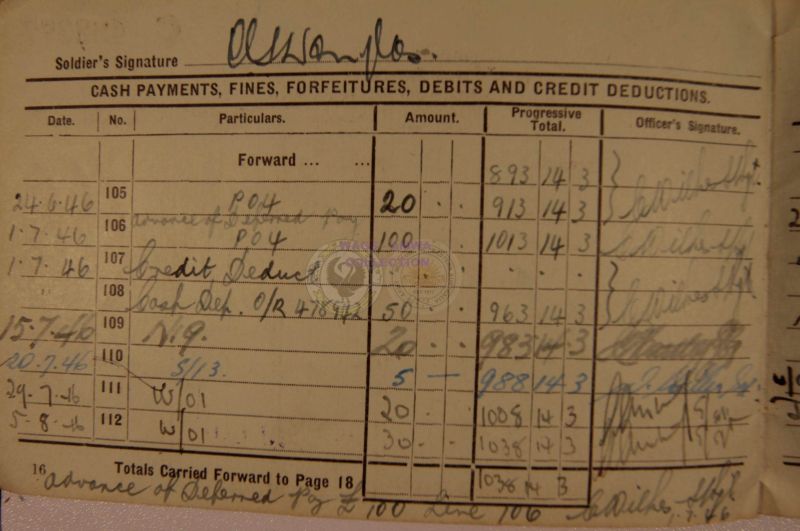 Soldier's Signature
CASH PAYMENTS, FINES, FORFEITURES, DEBITS AND CREDIT DEDUCTIONS.
Date. No. Particulars. Amount. Progressive Total. Officer's Signature.
Forward ... ... 893 14 3
24.6.46 105 P04 20 . . 913 14 3
advance of Deferred Pay
1.7.46 106 P04 100 . . 1013 14 3
1.7.46 107 Credit Deduct . . . . . .
108 Cash Dep. O/R 50 . . 963 14 3
15.7.46 109 N.9. 20 . . 983 14 3
20.7.46 110 S/13. 5 — 988 14 3
29.7.46 111 W/01 20 . . 1008 14 3
5.8.46 112 W/01 30 . . 1038 14 3
16 Totals Carried Forward to Page 18 1038 14 3
advance of Deferred Pay £100 Line 106 C Wilkes S/Sgt
1.7.46
WAGGA WAGGA
COLLECTION